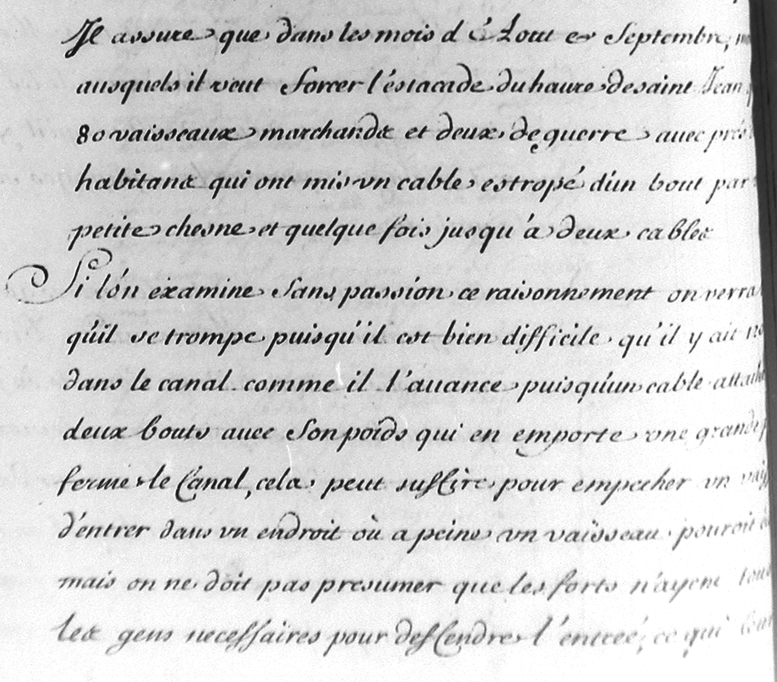 Je assure que dans les mois d'Aout et Septembre,
ausquels il veut forcer l'éstacade du havre de saint Jean
80 vaisseaux marchands et deux de guerre avec prés
habitans qui ont mis vn cable estropé d'un bout par
petite chesne et quelque fois jusqu'a deux cables
Si lón examine Sans passion ce raisonnement on verra
qu'il se trompe puisqu'il est bien difficile qu'il y ait
dans le canal comme il l'auance puisqu'un cable
deux bouts avec Son poids qui en emporte vne grande
ferme le Canal, cela peut suffire pour empecher vn
d'entrer dans vn endroit où a peine vn vaisseau pouroit
mais on ne doit pas presumer que les forts n'ayent tous
les gens necessaires pour deffendre l'entreé, ce qui